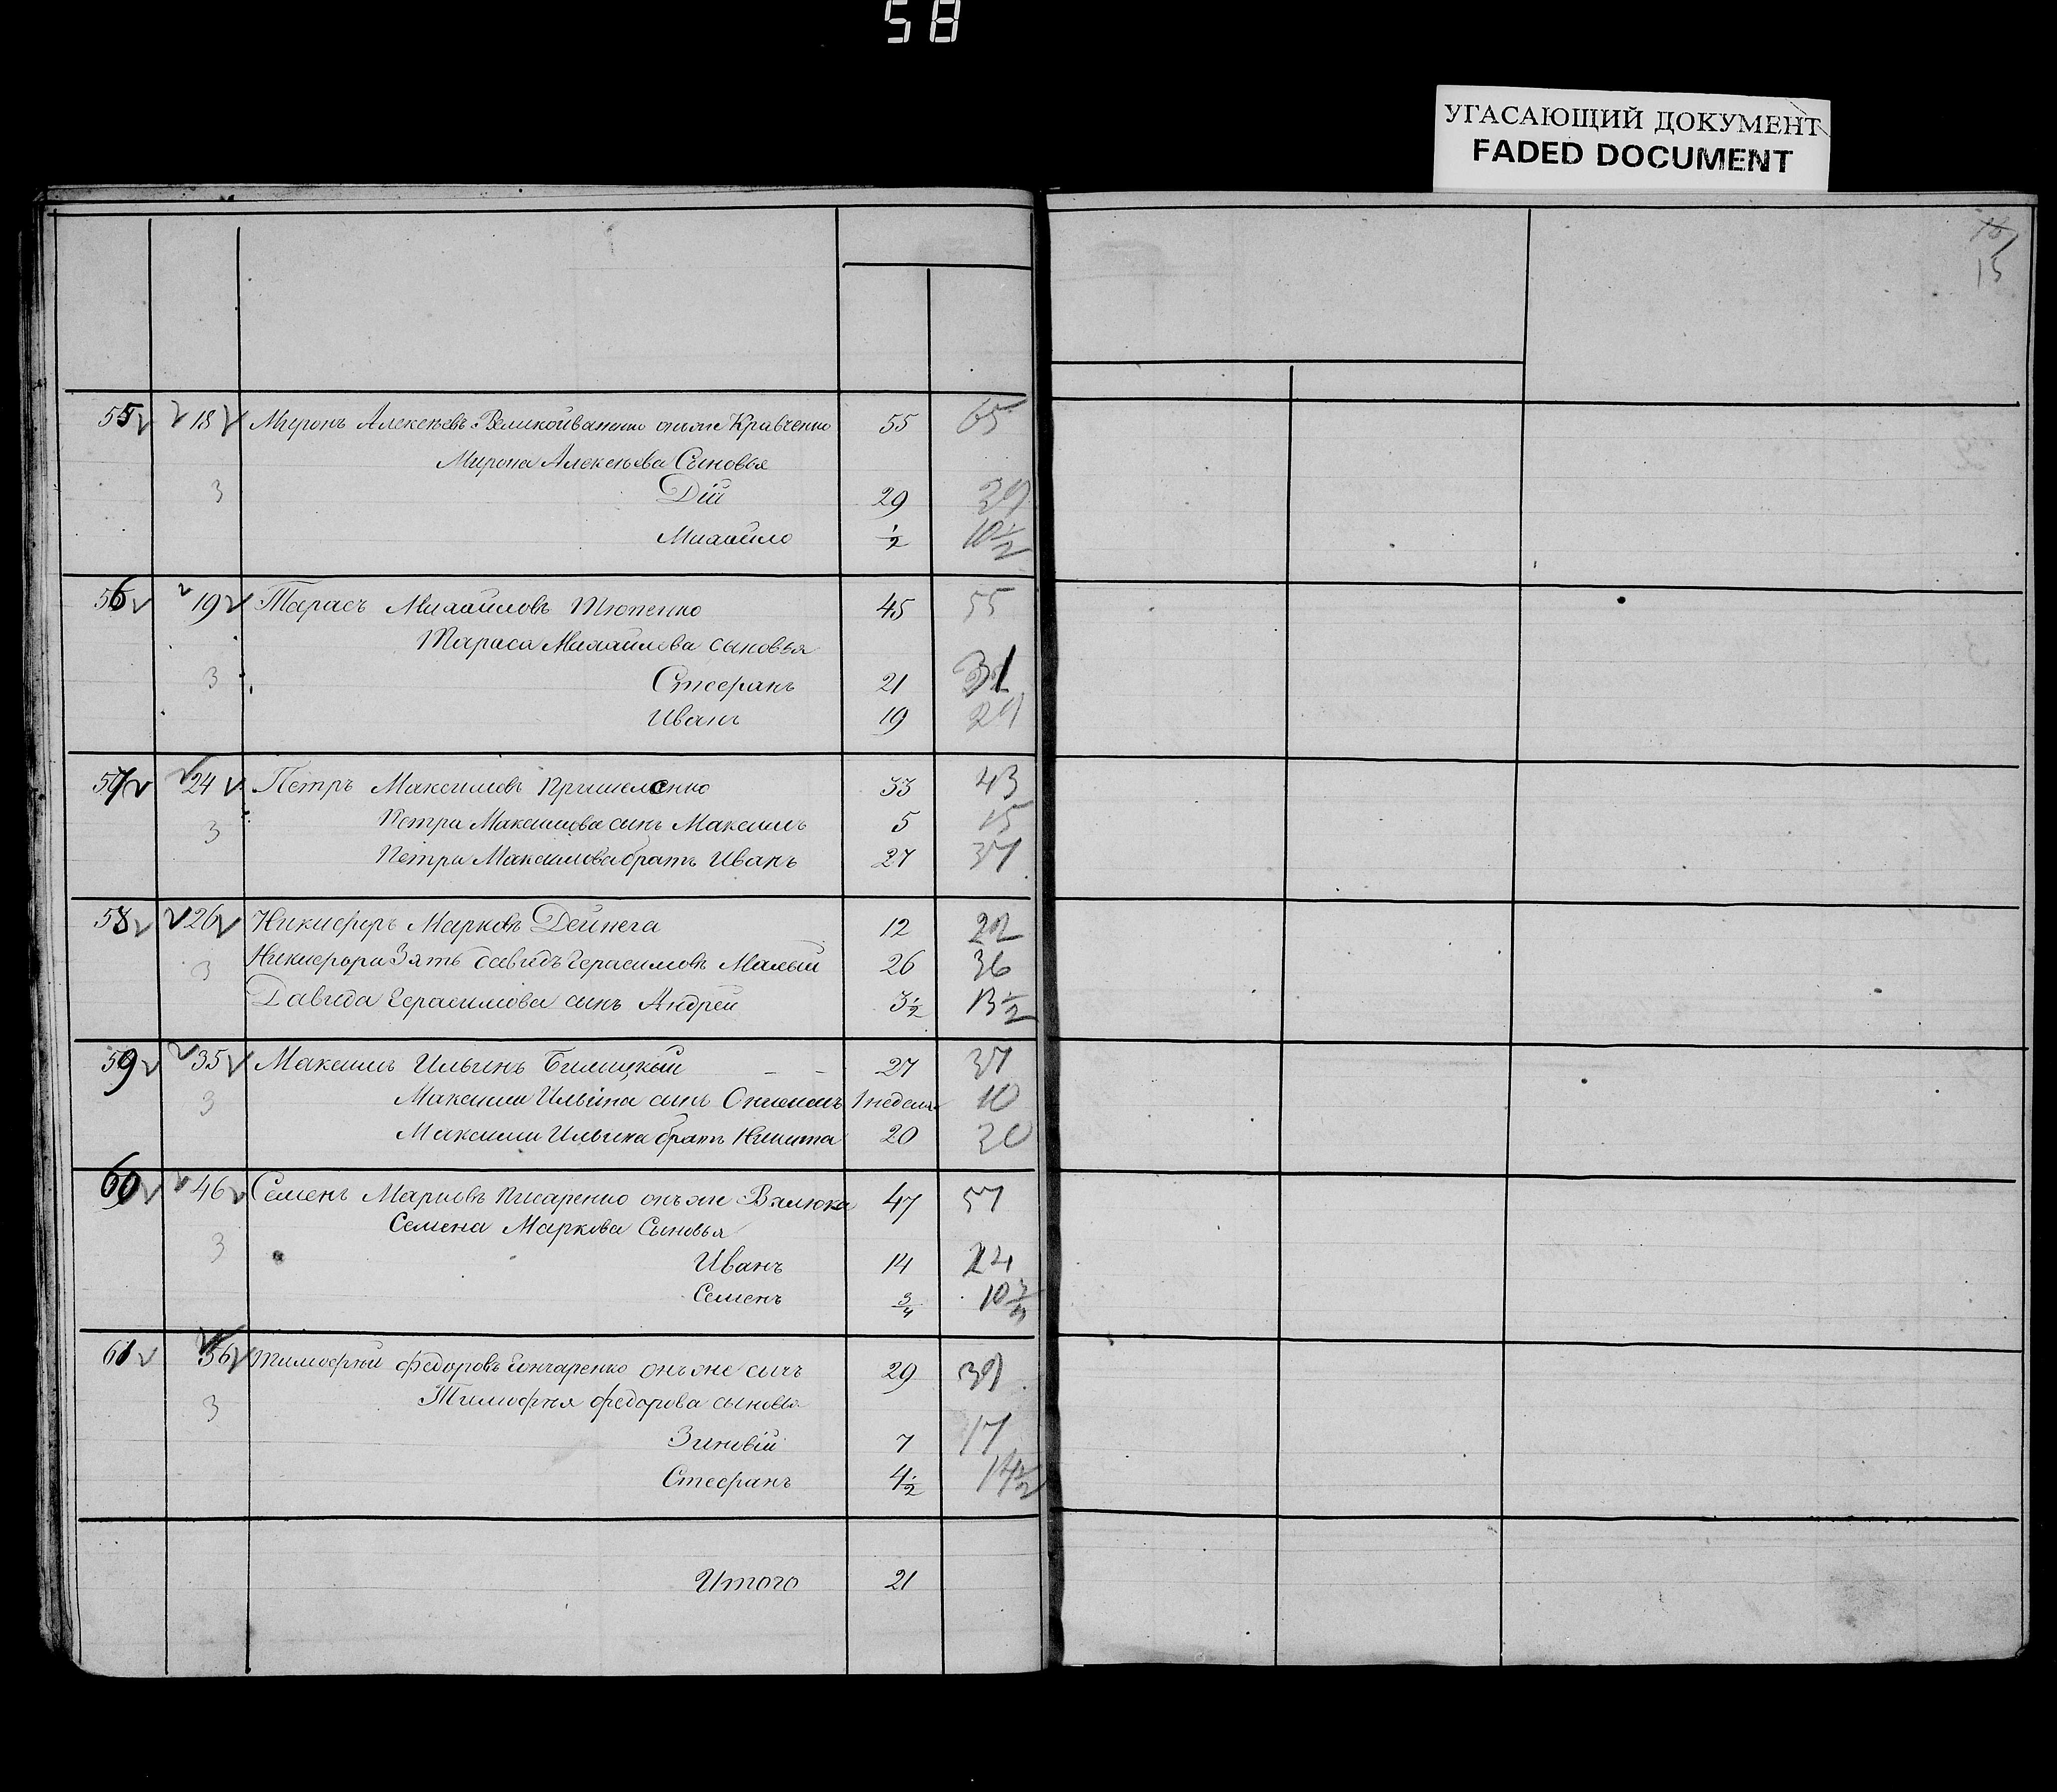 58
УГАСАЮЩИЙ ДОКУМЕНТ
FADED DOCUMENT
15
55 18 Миронъ Алексѣевъ Великоиваненко онъ же Кравченко 55 65
Мирона Алексѣева Сыновья
3 Дій 29 39
Михайло ½ 10½
56 19 Тарасъ Михайловъ 45 55
Тараса Михайлова сыновья
3 Стефанъ 21 31
Иванъ 19 29
57 24 Петръ Максимовъ 33 43
Петра Максимова сынъ Максимъ 5 15
3
Петра Максимова братъ Иванъ 27 37
58 26 Никифоръ Марковъ Дейнега 12 22
3 Никифора Зять Давидъ Герасимовъ Малый 26 36
Давида Герасимова сынъ Андрей 3½ 13½
59 35 Максимъ Ильинъ Билицкый 27 37
3 Максима Ильина сынъ 1 неделя 10
Максима Ильина братъ Никита 20 30
60 46 Семенъ Марковъ Писаренко онъ же Вялюка 47 57
Семена Маркова Сыновья
3 Иванъ 14 24
Семенъ ¾ 10¾
61 56 Тимофѣй Федоровъ Гончаренко онъ же Сичъ 29 39
3 Тимофѣя Федорова сыновья
Зиновій 7 17
Стефанъ 4½ 14½
Итого 21